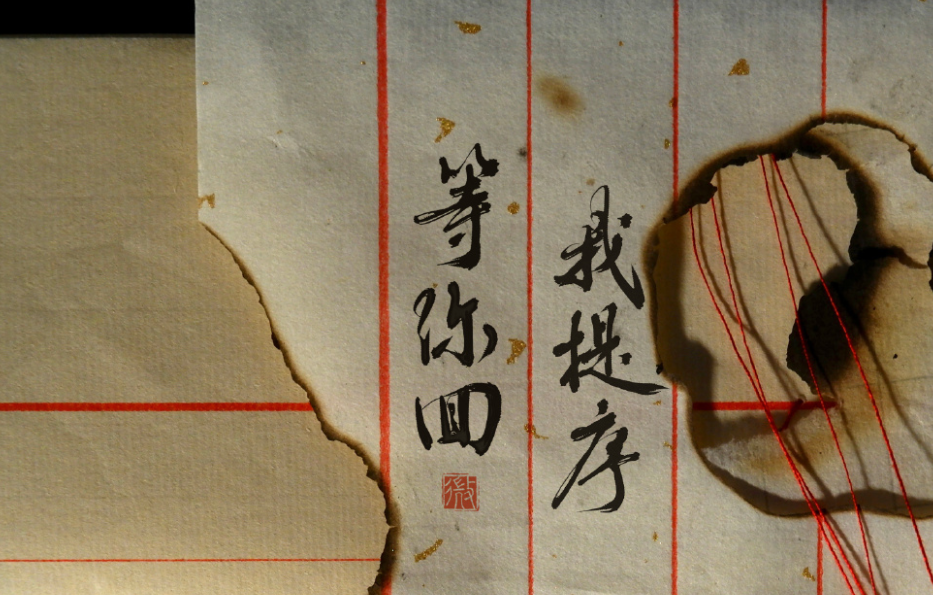 我提序
等你回
微